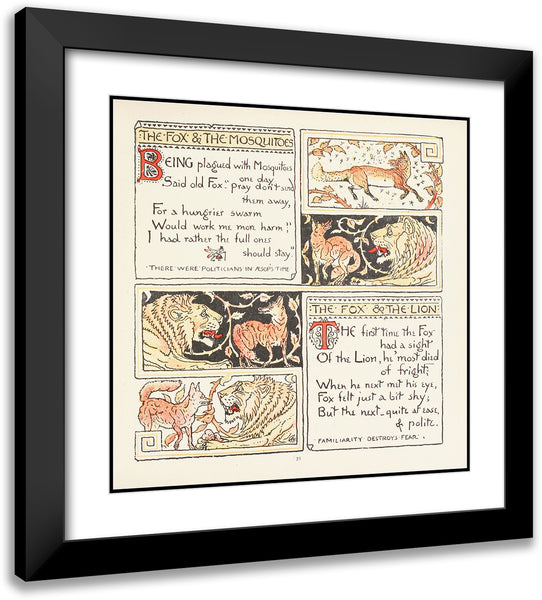 THE FOX & THE MOSQUITOES
BEING plagued with Mosquitoes
one day
Said old Fox: "pray don't send
them away,
For a hungrier swarm
Would work me mor harm;
I had rather the full ones
should stay."
THERE WERE POLITICIANS IN ÆSOP'S TIME
THE FOX & THE LION
THE first time the Fox
had a sight
Of the Lion, he'most died
of fright;
When he next met his eye,
Fox felt just a bit shy;
But the next_quite at ease,
& polite.
FAMILIARITY DESTROYS FEAR